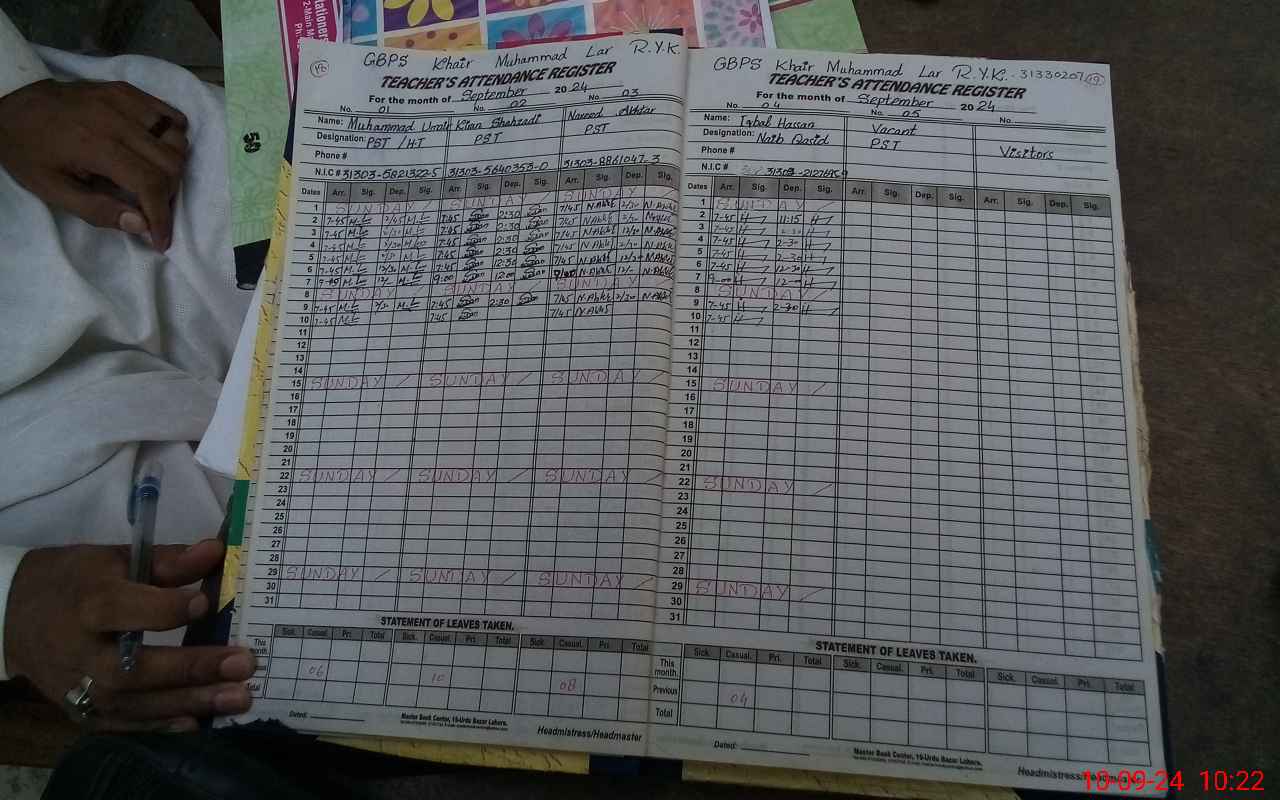 Stationers
2-Main M
50
12
GBPS Khair Muhammad Lar R.Y.K.
TEACHER'S ATTENDANCE REGISTER
For the month of September 2024
No. 01 No. 02 No. 03
Name: Muhammad Umair Kiran Shahzadi Naveed Akhtar
Designation: PST / H.T PST PST
Phone #
N.I.C # 31303-5821322-5 31303-5640353-0 31303-8861047-3
Dates Arr. Sig. Dep. Sig. Arr. Sig. Dep. Sig. Arr. Sig. Dep. Sig.
1 SUNDAY SUNDAY SUNDAY
2 7-45 7:45 2:30 7/45 N.Akht 2/30
3 7-45 7:45 2:30 7/45 N.Akht
4 7-45 7:45 2:30 7/45 N.Akht
5 7-45 7:45 2:30 7/45 N.Akht
6 7-45 7:45 12:30 7/45 N.Akht
7 9:00 12:00 N.Akht
8 SUNDAY SUNDAY SUNDAY
9 7-45 7:45 2:30 7/45 N.Akht 2/30
10 7-45 7:45 7/45 N.Akht
11
12
13
14
15 SUNDAY / SUNDAY / SUNDAY /
16
17
18
19
20
21
22 SUNDAY / SUNDAY / SUNDAY /
23
24
25
26
27
28
29 SUNDAY / SUNDAY / SUNDAY /
30
31
STATEMENT OF LEAVES TAKEN.
Sick. Casual. Pri. Total Sick. Casual. Pri. Total Sick. Casual. Pri. Total
This month.
06 10 08
Total
Dated:
Master Book Center, 19-Urdu Bazar Lahore.
Headmistress/Headmaster
GBPS Khair Muhammad Lar R.Y.K. 31330207
TEACHER'S ATTENDANCE REGISTER
For the month of September 2024
No. 04 No. 05 No.
Name: Iqbal Hassan Vacant
Designation: Naib Qasid PST Visitors
Phone #
N.I.C # 31303-
Dates Arr. Sig. Dep. Sig. Arr. Sig. Dep. Sig. Arr. Sig. Dep. Sig.
1 SUNDAY /
2 7-45 H 11:15 H
3 7-45 H 2-30 H
4 7-45 H 2-30 H
5 7-45 H 2-30 H
6 7-45 H 12-30 H
7 H H
8 SUNDAY /
9 7-45 H 2-30 H
10 7-45 H
11
12
13
14
15 SUNDAY /
16
17
18
19
20
21
22 SUNDAY /
23
24
25
26
27
28
29 SUNDAY /
30
31
STATEMENT OF LEAVES TAKEN.
Sick. Casual. Pri. Total Sick. Casual. Pri. Total Sick. Casual. Pri. Total
This month.
Previous 04
Total
Dated:
Master Book Center, 19-Urdu Bazar Lahore.
Headmistress/Headmaster
10-09-24 10:22